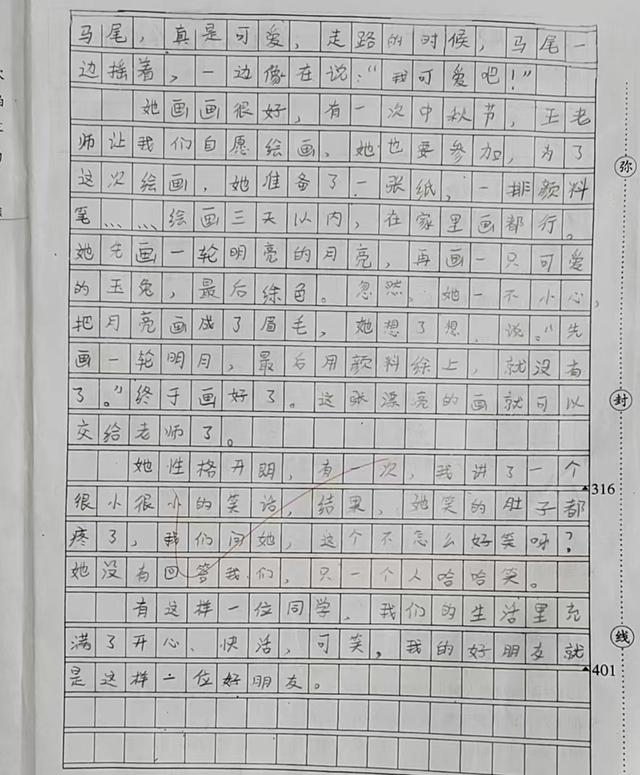 马尾，真是可爱，走路的时候，马尾一
边摇着，一边像在说：“我可爱吧！”
她画画很好，有一次中秋节，王老
师让我们自愿绘画，她也要参加，为了
这次绘画，她准备了一张纸，一排颜料
笔……绘画三天以内，在家里画都行。
她先画一轮明亮的月亮，再画一只可爱
的玉兔，最后涂色。忽然，她一不小心，
把月亮画成了眉毛，她想了想，说：“先
画一轮明月，最后用颜料涂上，就没有
了。”终于画好了。这张漂亮的画就可以
交给老师了。
她性格开朗，有一次，我讲了一个
很小很小的笑话，结果，她笑的肚子都
疼了，我们问她，这个不怎么好笑呀？
她没有回答我们，只一个人哈哈笑。
有这样一位同学，我们的生活里充
满了开心、快活，可笑，我的好朋友就
是这样一位好朋友。
316
401
弥
封
线